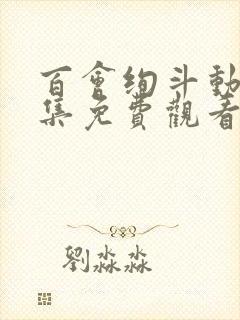 百會絢斗動
集免費觀看
劉淼淼